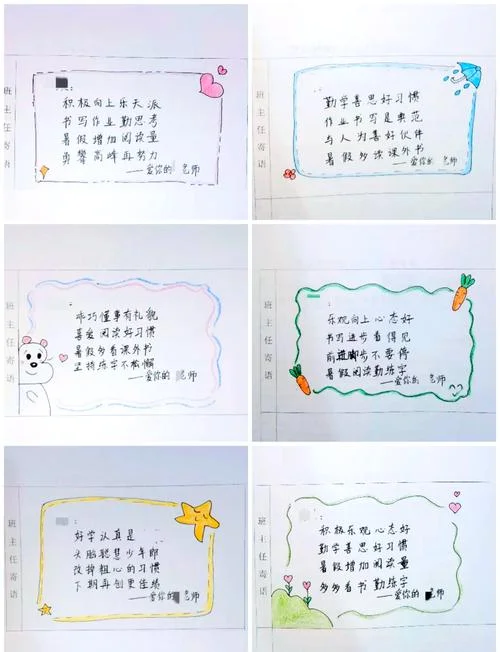 班主任寄语
积极向上乐天派
书写作业勤思考
暑假增加阅读量
勇攀高峰再努力
——爱你的 老师
班主任寄语
勤学善思好习惯
作业书写是典范
与人为善好伙伴
暑假多读课外书
——爱你的 老师
班主任寄语
乖巧懂事有礼貌
喜爱阅读好习惯
暑假多看课外书
坚持练字不松懈
——爱你的 老师
班主任寄语
乐观向上心态好
书写进步看得见
前进脚步不要停
暑假阅读勤练字
——爱你的 老师
班主任寄语
好学认真是
大脑聪慧少年郎
改掉粗心的习惯
下期再创更佳绩
——爱你的 老师
班主任寄语
积极乐观心态好
勤学善思好习惯
暑假增加阅读量
多多看书勤练字
——爱你的 老师